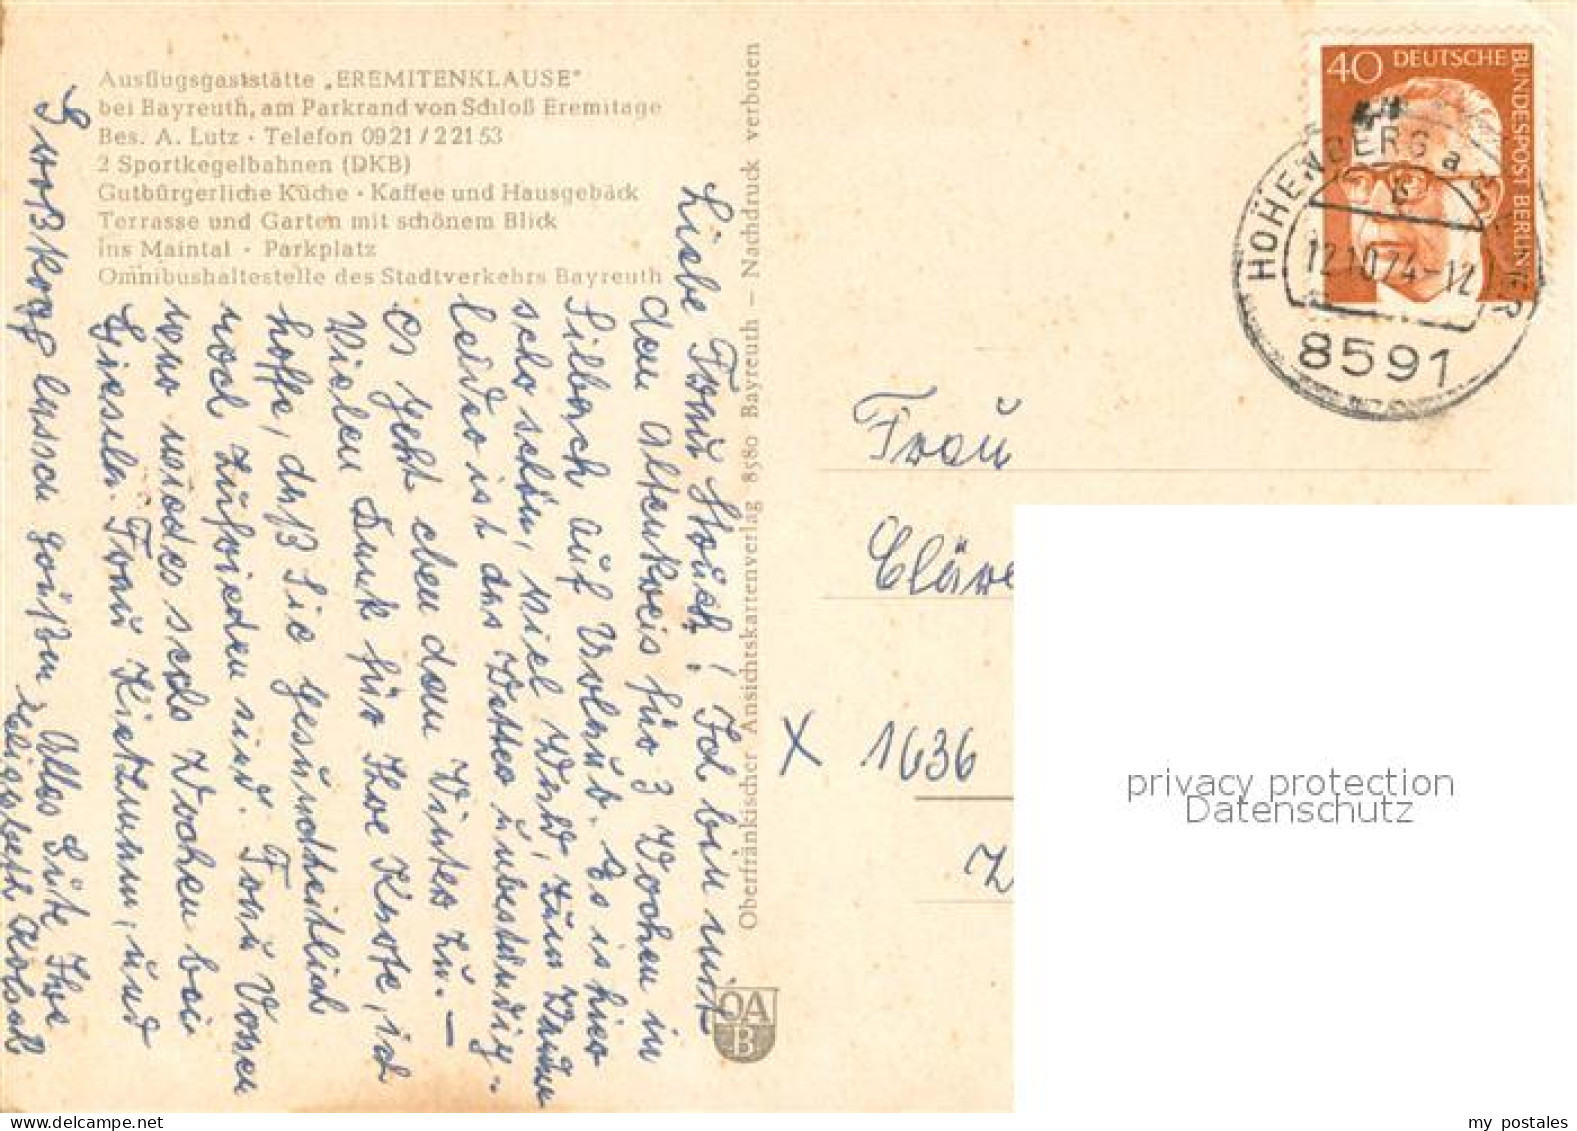 Ausflugsgaststätte „EREMITENKLAUSE"
bei Bayreuth, am Parkrand von Schloß Eremitage
Bes. A. Lutz · Telefon 0921 / 22153
2 Sportkegelbahnen (DKB)
Gutbürgerliche Küche · Kaffee und Hausgebäck
Terrasse und Garten mit schönem Blick
ins Maintal · Parkplatz
Omnibushaltestelle des Stadtverkehrs Bayreuth
Liebe Frau Stauch! Ich bin mit
dem Altenkreis für 3 Wochen in
Silbach auf Urlaub. Es is hier
sehr schön, viel Wald, zum Wandern
leider ist das Wetter unbeständig.
es geht eben dem Winter zu. –
Vielen Dank für Ihre Karte, ich
hoffe, daß Sie gesundheitlich
noch zufrieden sind. Frau
war wieder sechs Wochen bei
Frau Kietzmann, und
lassen grüßen
Alles Gute Ihre
Oberfränkischer Ansichtskartenverlag 8580 Bayreuth – Nachdruck verboten
OA
B
40 DEUTSCHE
BUNDESPOST BERLIN
HOHENBERG a
12.10.74-12
8591
Frau
Cläre
X 1636
privacy protection
Datenschutz
my postales